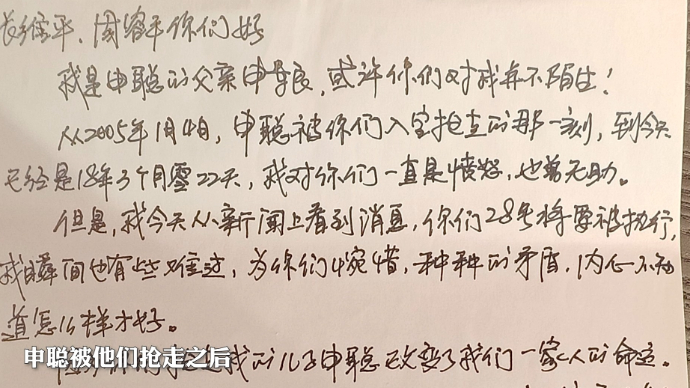 张维平、周容平你们好
我是申聪的父亲申军良，或许你们对我并不陌生！
从2005年1月4日，申聪被你们入室抢走的那一刻，到今天
已经是18年3个月零22天，我对你们一直是愤怒，也曾无助。
但是，我今天从新闻上看到消息，你们28号将要被执行，
我瞬间也有些难过，为你们惋惜，种种的矛盾，内心不知
道怎么样才好。
我的儿子申聪改变了我们一家人的命运。
申聪被他们抢走之后